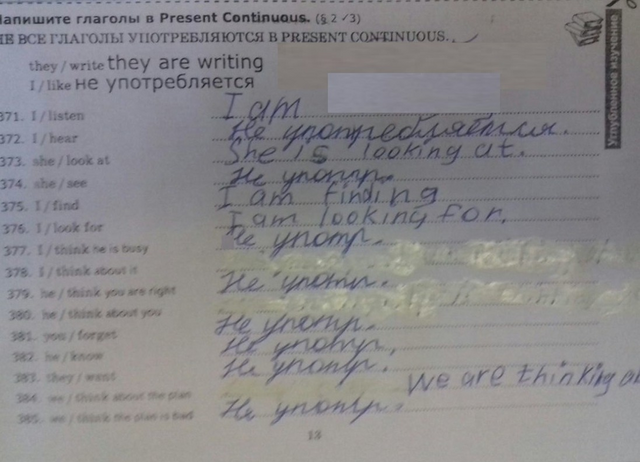 Напишите глаголы в Present Continuous. (§ 2 ✓3)
НЕ ВСЕ ГЛАГОЛЫ УПОТРЕБЛЯЮТСЯ В PRESENT CONTINUOUS.
they / write they are writing
I / like не употребляется
371. I / listen I am
372. I / hear Не употребляется.
373. she / look at She is looking at.
374. she / see Не употр.
375. I / find I am finding
376. I / look for I am looking for.
377. I / think he is busy Не употр.
378. I / think about it
379. he / think you are right Не употр.
380. he / think about you
381. you / forget Не употр.
382. he / know Не употр.
383. they / want Не употр.
384. we / think about the plan We are thinking
385. we / think the plan is bad Не употр.
13
Углубленное изучение